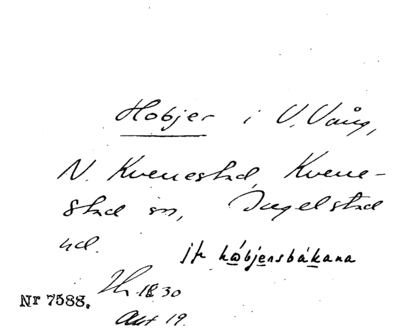 Hobjer i V. Vång,
N. Kvenestad, Kvene-
stad sn, Ingelstad
hd.
jfr håbjensbåkana
Nr 7588.
30
19.